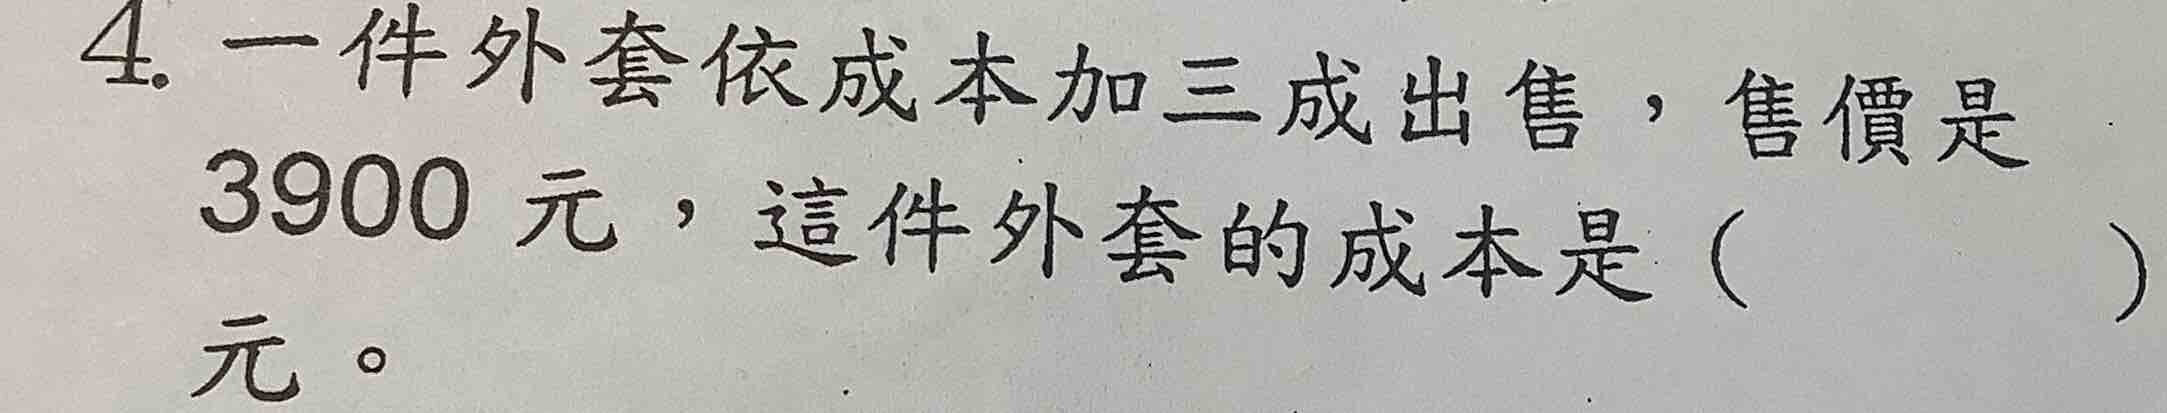 4. 一件外套依成本加三成出售，售價是
3900 元，這件外套的成本是（　　　）
元。